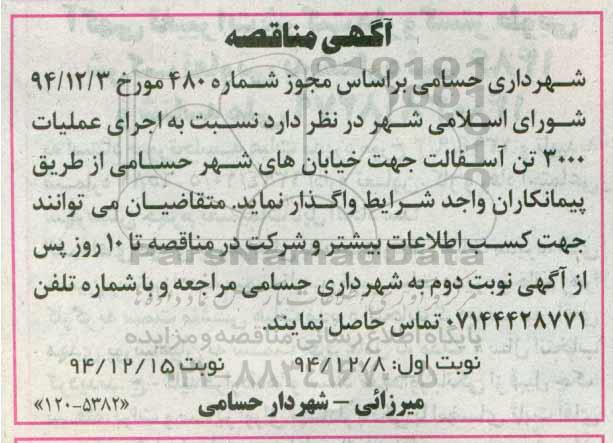 آگهی مناقصه
شهرداری حسامی براساس مجوز شماره ۴۸۰ مورخ ۹۴/۱۲/۳
شورای اسلامی شهر در نظر دارد نسبت به اجرای عملیات
۳۰۰۰ تن آسفالت جهت خیابان های شهر حسامی از طریق
پیمانکاران واجد شرایط واگذار نماید. متقاضیان می توانند
جهت کسب اطلاعات بیشتر و شرکت در مناقصه تا ۱۰ روز پس
از آگهی نوبت دوم به شهرداری حسامی مراجعه و با شماره تلفن
۰۷۱۴۴۴۲۸۷۷۱ تماس حاصل نمایند.
نوبت اول: ۹۴/۱۲/۸ نوبت ۹۴/۱۲/۱۵
میرزائی - شهردار حسامی «۱۲۰-۵۳۸۲»
ParsNamadData
پایگاه اطلاع رسانی مناقصه و مزایده